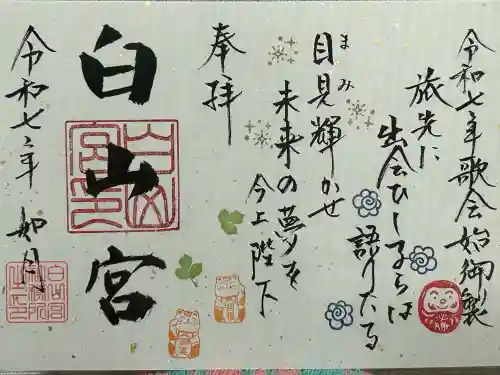 令和七年歌会始御製
旅先に
出会ひし子らは
語りたる
目見輝かせ
まみ
未来の夢を
今上陛下
奉拝
白山宮
白山宮印
令和七年 如月